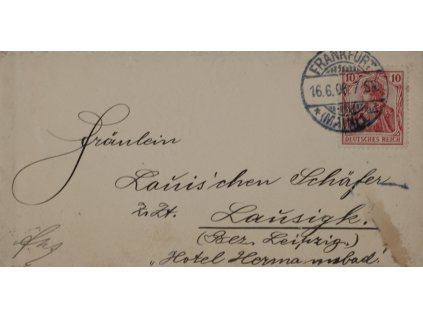 FRANKFURT
10 10
16.6.06.7-8
* (MAIN) *
DEUTSCHES REICH
Fräulein
Louis'chen Schäfer
z. Zt.
Lausigk.
(Bez. Leipzig.)
"Hotel Hermannsbad."